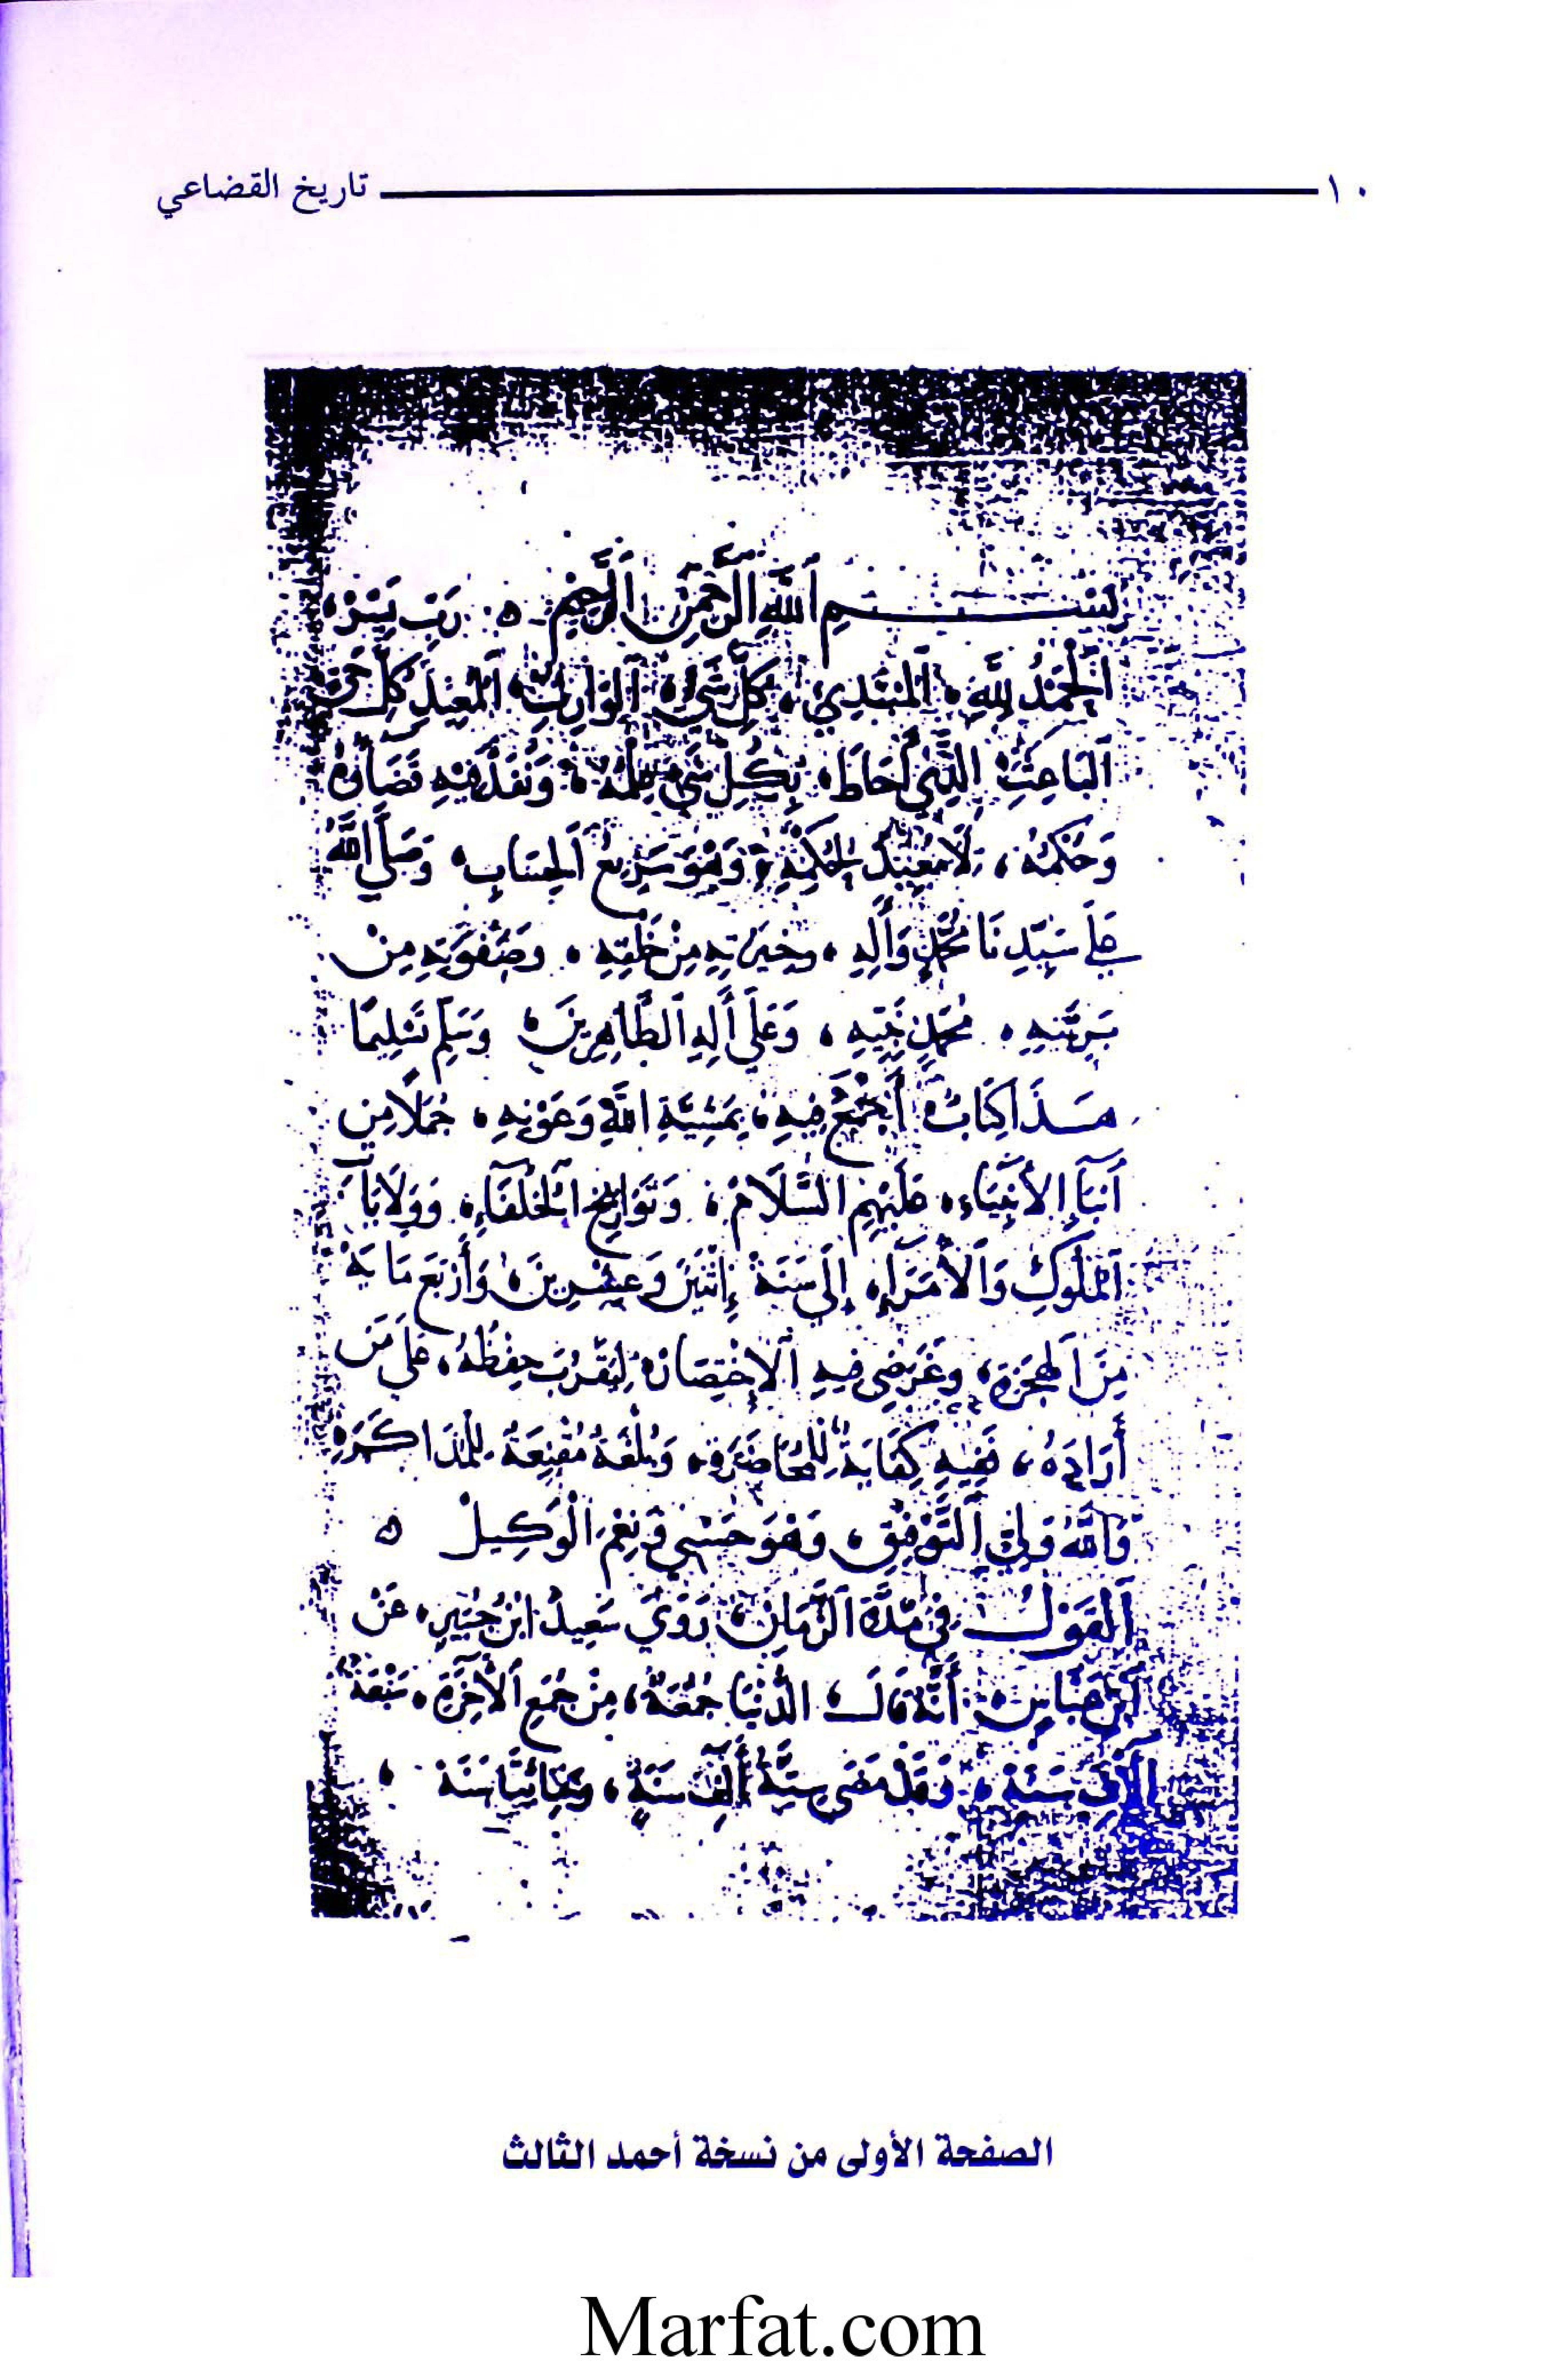 ١٠ تاريخ القضاعي
بِسْمِ ٱللَّهِ ٱلرَّحْمَنِ ٱلرَّحِيمِ ه رَبِّ يَسِّرْ
ٱلْحَمْدُ لِلَّهِ ٱلْمُبْتَدِئِ كُلِّ شَيْءٍ ٱلْوَارِثِ ٱلْمُعِيدِ كُلَّ حَيٍّ
ٱلْبَاعِثِ الَّذِي أَحَاطَ بِكُلِّ شَيْءٍ عِلْمُهُ وَنَفَذَ فِيهِ قَضَاؤُهُ
وَحُكْمُهُ، لَا مُعَقِّبَ لِحُكْمِهِ وَهُوَ سَرِيعُ ٱلْحِسَابِ، وَصَلَّى ٱللَّهُ
عَلَى سَيِّدِنَا مُحَمَّدٍ وَآلِهِ، وخِيرَتِهِ مِنْ خَلْقِهِ، وصَفْوَتِهِ مِنْ
بَرِيَّتِهِ، مُحَمَّدٍ نَبِيِّهِ، وَعَلَى آلِهِ ٱلطَّاهِرِينَ وَسَلَّمَ تَسْلِيمًا
هَذَا كِتَابٌ أَجْمَعُ فِيهِ، بِمَشِيَّةِ اللَّهِ وَعَوْنِهِ، جُمَلًا مِن
أَنْبَآءِ الأَنْبِيَاءِ، عَلَيْهِمِ السَّلَامُ، وَتَوَارِيخِ ٱلْخُلَفَآءِ، وَوِلَايَاتِ
ٱلْمُلُوكِ وَٱلْأُمَرَآءِ، إِلَى سَنَةِ إِثْنَيْنِ وَعِشْرِينَ، وَأَرْبَعِ مَايَةٍ
مِنَ ٱلْهِجْرَةِ، وغَرَضِي فِيهِ ٱلْإِخْتِصَارُ، لِيَقْرُبَ حِفْظُهُ، عَلَى مَن
أَرَادَهُ، فَفِيهِ كِفَايَةٌ لِلْمُحَاضَرَةِ، وَبُلْغَةٌ مُقْنِعَةٌ لِلْمُذَاكَرَةِ
وَٱللَّهُ وَلِيُّ ٱلتَّوْفِيقِ، وَهُوَ حَسْبِي وَنِعْمَ الْوَكِيلُ ه
ٱلْقَوْلُ فِي مُدَّةِ ٱلزَّمَانِ، رَوَىَ سَعِيدُ ابْنُ جُبَيْرٍ، عَنْ
ٱبْنِ عَبَّاسٍ، أَنَّهُ قَالَ، الدُّنْيَا جُمُعَةٌ، مِنْ جُمَعِ ٱلْآخِرَةِ، سَبْعَةُ
آلَافِ سَنَةٍ، وَقَدْ مَضَى سِتَّةُ أَلْفِ سَنَةٍ، وَمِائَتَا سَنَة،
الصفحة الأولى من نسخة أحمد الثالث
Marfat.com